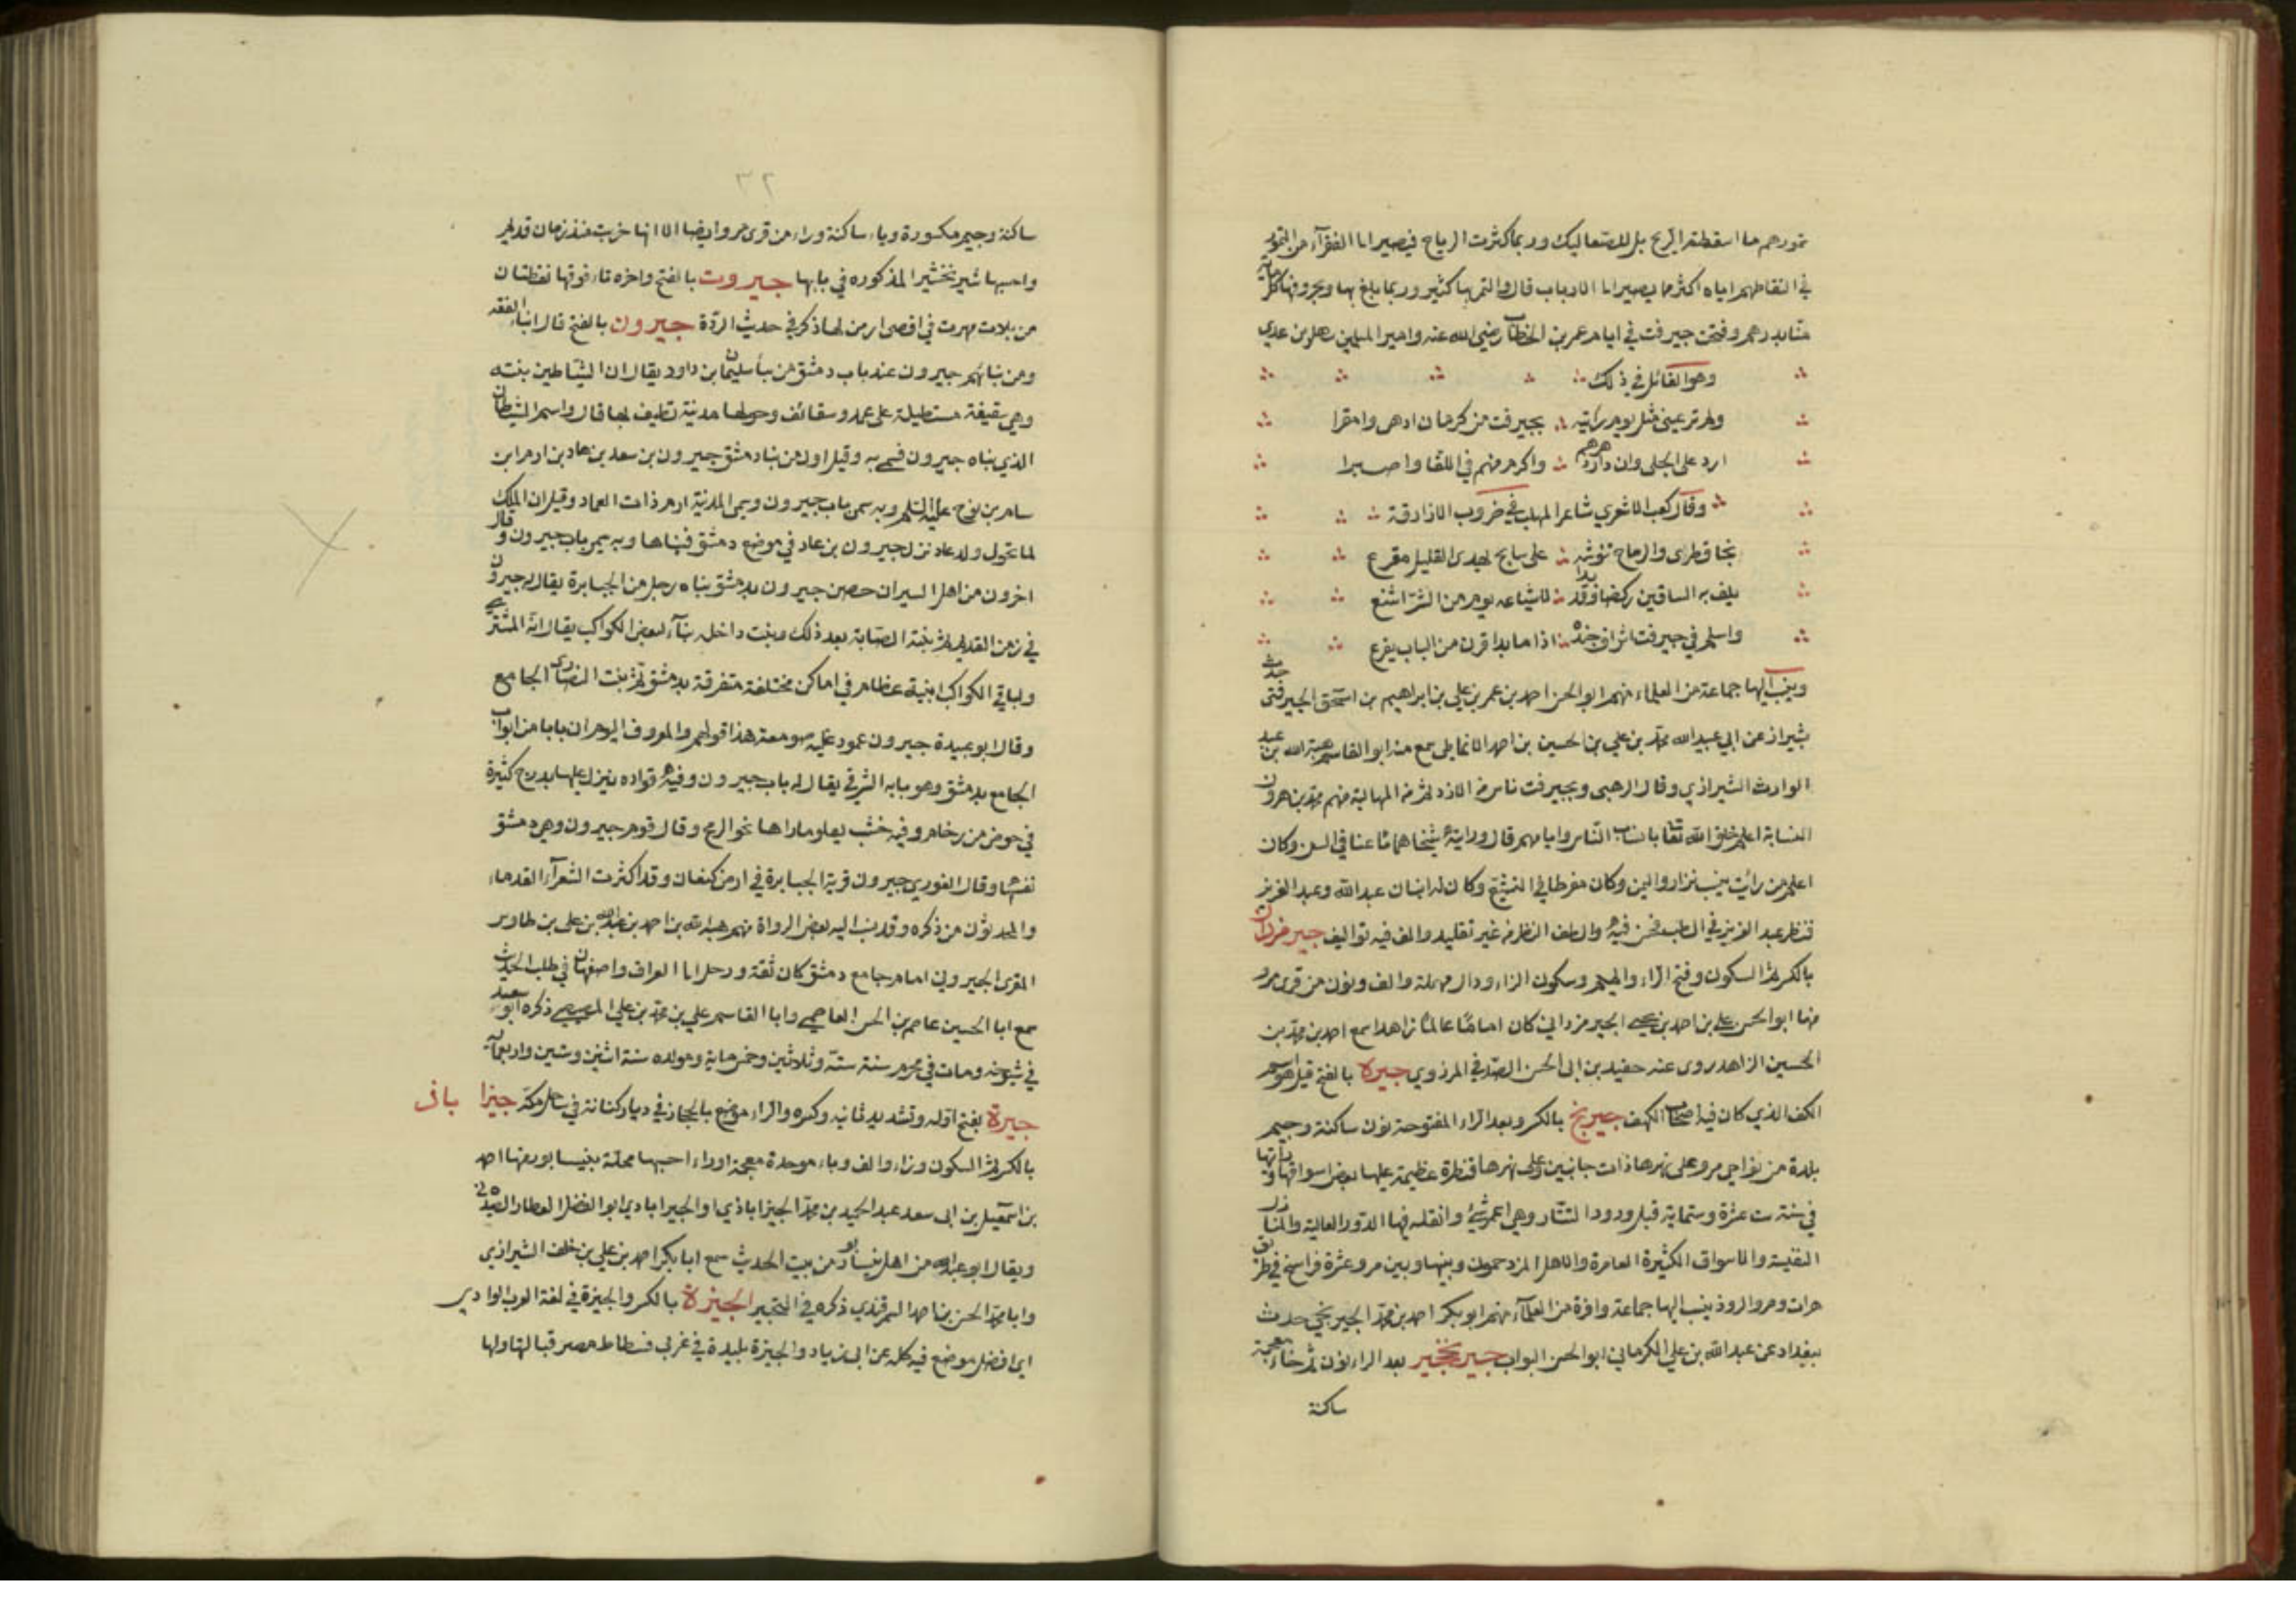 تمورهم ما اسقطته الريح بل للصعاليك وربما كثرت الرياح فيصير الى الفقرآء من التمور
في التقاطهم اياه اكثر مما يصير الى الارباب قال والتمر بها كثير وربما بلغ بها وبجرومها كل ماية
منّا بدرهم وفتحت جيرفت في ايام عمر بن الخطاب رضي الله عنه وامير المسلمين سهل بن عدي
وهو القائل في ذلك
ولم تر عيني مثل يوم رايته بجيرفت من كرمان ادهى وامقرا
ارد على الجلى وان دار دهرهم واكرم منهم في اللقا واصبرا
وقال كعب الاشعري شاعر المهلب في حروب الازارقة
نجا قطري والرماح تنوشه على سابح نهدى القليل مقرع
يلف به الساقين ركضا وقد بدا لاشياعه يوم من الشر اشنع
واسلم في جيرفت اشراف جنده اذا ما بدا قرن من الباب يقرع
وينسب اليها جماعة من العلماء منهم ابو الحسن احمد بن عمر بن علي بن ابراهيم بن اسحق الجيرفتى حدث
بشيراز عن ابي عبيد الله محمد بن علي بن الحسين بن احمد الانماطي سمع منه ابو القاسم هبة الله بن عبد
الوارث الشيرازي وقال الرهبى وبجيرفت ناس من الازد ثم من المهالبة منهم محمد بن هرون
النسابة اعلم خلق الله تعا بانساب الناس وايامهم قال ورايته شيخا هما مّا عنا في السن وكان
اعلم من رأيت بنسب نزار واليمن وكان مفرطا في التشيّع وكان له ابنان عبد الله وعبد العزيز
فنظر عبد العزيز في الطب فحسن فيه والطف النظر من غير تقليد والف فيه تواليف جيرمزدان
بالكسر ثم السكون وفتح الرّاء والميم وسكون الزاء ودال مهملة والف ونون من قرى مرو
منها ابو الحسن علي بن احمد بن يحيى الجيرمزداني كان اماما عالمًا زاهدا سمع احمد بن محمد بن
الحسين الزاهد روى عنه حفيد بن ابى الحسن الصّدفي المرذوي جيرة بالفتح قيل هو اسم
الكف الذي كان فيه اصحاب الكهف جيرنج بالكسر وبعد الرّاء المفتوحة نون ساكنة وجيم
بلدة من نواحي مرو على نهرها ذات جانبين وعلى نهرها قنطرة عظيمة عليها بعض اسواقها رأيتها
في سنة ست عشرة وستماية قبل ورود التّتار وهي اعمر شئ وانقله فيها الدّور العالية والمنازل
النفيسة والاسواق الكثيرة العامرة والاهل المزدحمون وبينها وبين مرو عشرة فراسخ في طريق
هرات ومرو الروذ ينسب اليها جماعة وافرة من العلمآء منهم ابو بكر احمد بن محمد الجيرنجي حدث
ببغداد عن عبد الله بن علي الكرماني ابو الحسن البواب جيرنخجير بعد الراء نون ثم خاء معجمة
ساكنة
٣٢
ساكنة وجيم مكسورة وياء ساكنة وراء من قرى مرو ايضا الا انها خربت منذ زمان قديم
واحسبها شيرنخشير المذكوره في بابها جيروت بالفتح واخره تاء فوقها نقطتان
من بلاد مهرت في اقصى ارض لها ذكر في حديث الرّدة جيرون بالفتح قال ابن الفقه
ومن بنائهم جيرون عند باب دمشق من بنا سليمان بن داود يقال ان الشياطين بنته
وهي سقيفة مستطيلة على عمد وسقائف وحولها مدينة تطيف بها قال واسم الشيطان
الذي بناه جيرون فسمي به وقيل اول من بنا دمشق جيرون بن سعد بن عاد بن ارم ابن
سام بن نوح عليه السلم وبه سمى باب جيرون وسمى المدينة ارم ذات العماد وقيل ان الملك
لما تحول ولد عاد نزل جيرون بن عاد في موضع دمشق فبناها وبه سمى باب جيرون وقال
اخرون من اهل السير ان حصن جيرون بدمشق بناه رجل من الجبابرة يقال له جيرون
في زمن القديم ثم بنته الصّابة بعد ذلك وبنت داخله بنآء لبعض الكواكب يقال انه المشتري
ولباقي الكواكب ابنية عظام في اماكن مختلفة متفرقة بدمشق ثم بنت النصارى الجامع
وقال ابو عبيدة جيرون عمود عليه صومعة هذا قولهم والمعروف اليوم ان بابا من ابواب
الجامع بدمشق وهو بابه الشرقي يقال له باب جيرون وفيه فواره ينزل عليها بدرج كثيرة
في حوض من رخام وفيه خشب يعلو ماؤها نحو الرمح وقال قوم جيرون وهي دمشق
نفسها وقال الغوري جيرون قرية الجبابرة في ارض كنعان وقد اكثرت الشعرآء القدماء
والمحدثون من ذكره وقد نسب اليه بعض الرواة منهم هبة الله بن احمد بن عبد الله بن على بن طاوس
المقرى الجيروني امام جامع دمشق كان ثقة ورحل الى العراق واصفهان في طلب الحديث
سمع ابا الحسين عاصم بن الحسن العاصمي وابا القاسم علي بن محمد بن علي المصيصي ذكره ابو سعيد
في شيوخه ومات في محرم سنة ستة وثلاثين وخمسماية ومولده سنة اثنين وستين واربعمائة
جيّرة بفتح اوّله وتشديد ثانيه وكسره والرّاء موضع بالحجاز في ديار كنانة في ساحل مكة جيزا باذ
بالكسر ثم السكون وزاء والف وباء موحدة معجمة او راء احسبها محلة بنيسابور منها احمد
بن اسمعيل بن ابى سعد عبد الحميد بن محمد الجيزاباذي او الجيراباذي ابو الفضل العطار الصيدلاني
ويقال ابو عبد الله من اهل نيسابور من بيت الحديث سمع ابا بكر احمد بن علي بن خلف الشيرازي
وابا محمد الحسن بن احمد السمرقندي ذكره في التحبير الجيزة بالكسر والجيزة في لغة العرب الوادي
اي افضل موضع فيه كله عن ابى زياد والجيزة بليدة في غربي فسطاط مصر قبالتها ولها